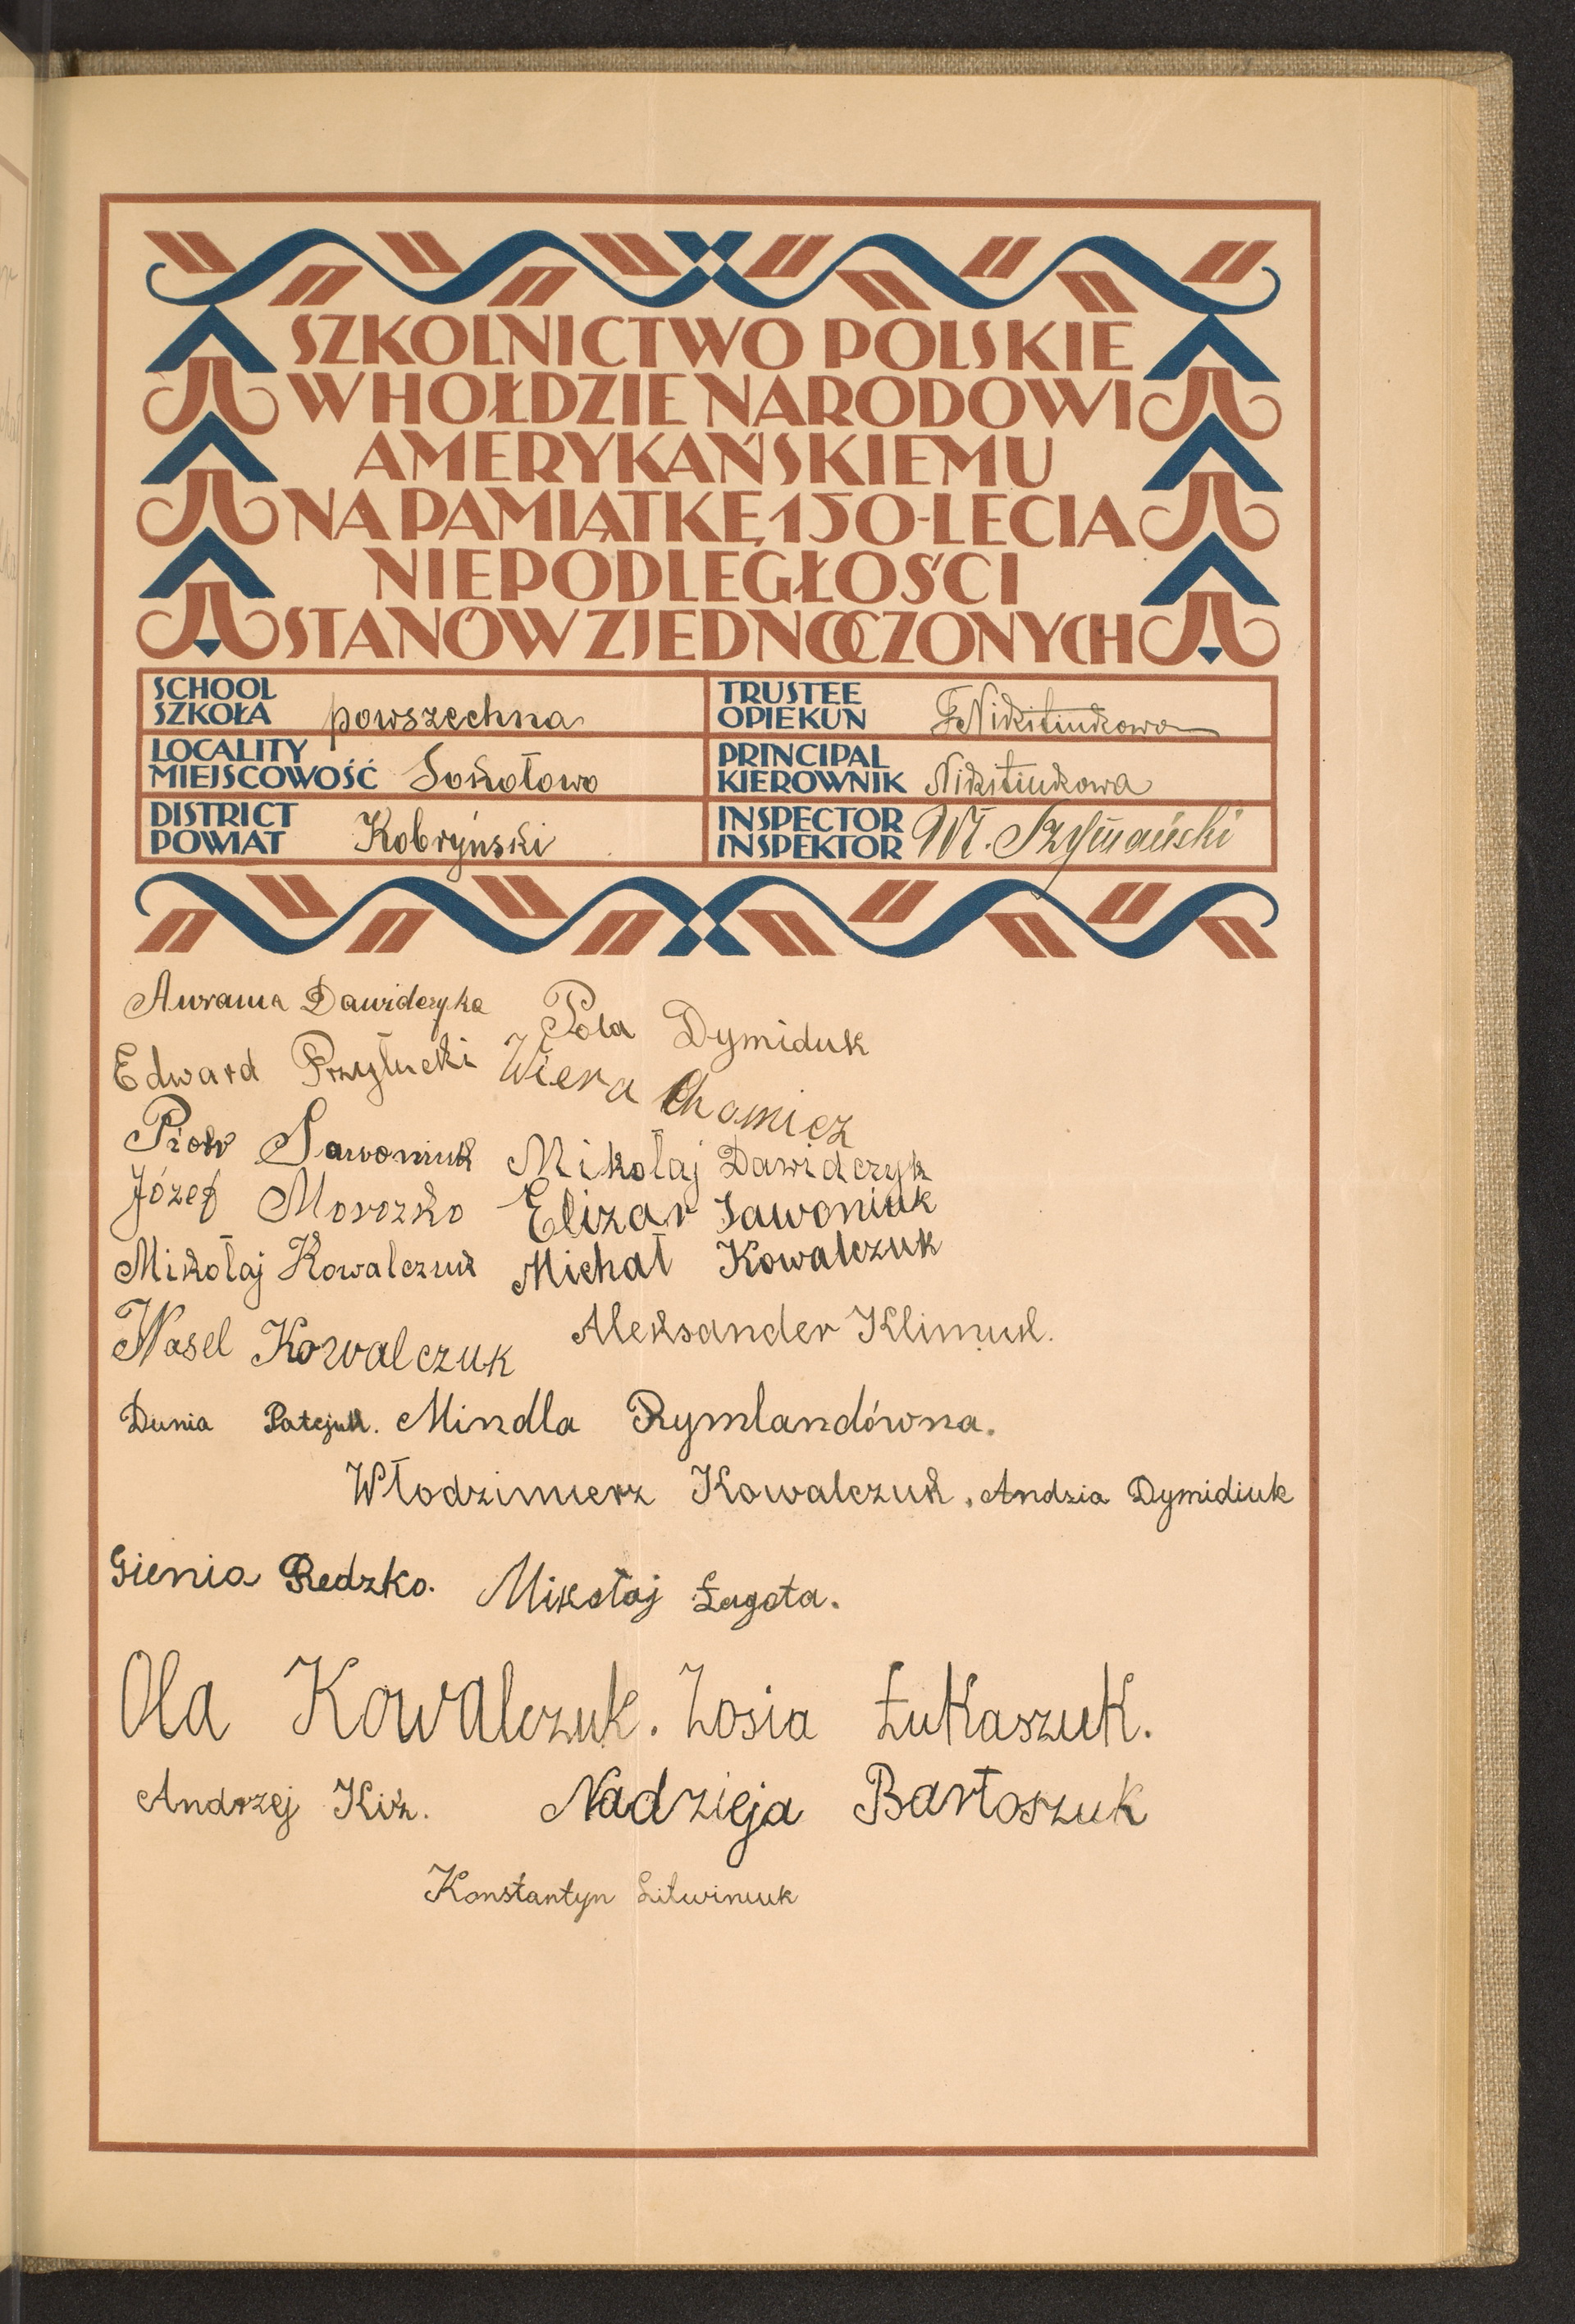 SZKOLNICTWO POLSKIE
W HOŁDZIE NARODOWI
AMERYKAŃSKIEMU
NA PAMIĄTKĘ 150-LECIA
NIEPODLEGŁOŚCI
STANÓW ZJEDNOCZONYCH
SCHOOL
SZKOŁA powszechna
TRUSTEE
OPIEKUN F. Nikitiukowa
LOCALITY
MIEJSCOWOŚĆ Sokołowo
PRINCIPAL
KIEROWNIK Nikitiukowa
DISTRICT
POWIAT Kobryński
INSPECTOR
INSPEKTOR Wł. Szymański
Dawidczyka Pola Dymiduk
Edward Przyłucki Wiera Chomicz
Piotr Sawoniuk Mikołaj Dawidczyk
Józef Morozko Elizar Sawoniuk
Mikołaj Kowalczuk Michał Kowalczuk
Wasel Kowalczuk Aleksander Klimuk.
Dunia Patejuk. Mindla Rymlandówna.
Włodzimierz Kowalczuk. Andzia Dymidiuk
Gienia Redzko. Mikołaj Łagota.
Ola Kowalczuk. Zosia Łukaszuk.
Andrzej Kiź. Nadzieja Bartoszuk
Konstantyn Litwiniuk